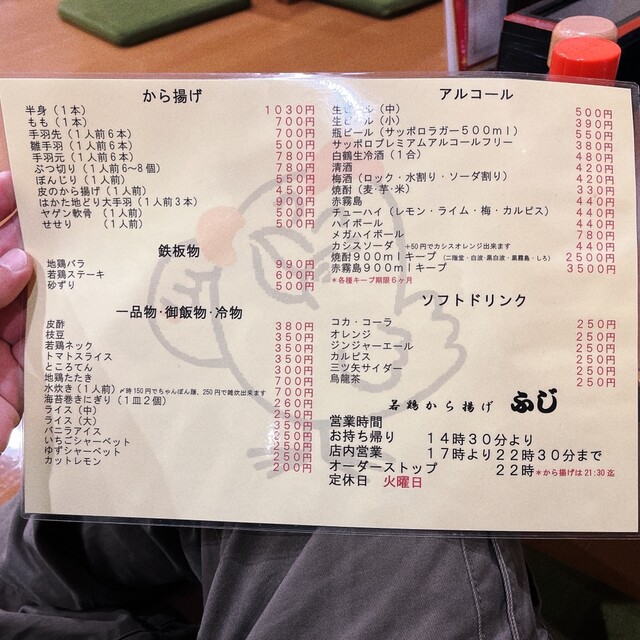 から揚げ
半身（１本） 1030円
もも（１本） 700円
手羽先（１人前６本） 700円
雛手羽（１人前６本） 500円
手羽元（１人前６本） 780円
ぶつ切り（１人前６～８個） 780円
ぼんじり（１人前） 550円
皮のから揚げ（１人前） 450円
はかた地どり大手羽（１人前３本） 900円
ヤゲン軟骨（１人前） 500円
せせり（１人前） 500円
鉄板物
地鶏バラ 990円
若鶏ステーキ 600円
砂ずり 500円
一品物・御飯物・冷物
皮酢 380円
枝豆 350円
若鶏ネック 350円
トマトスライス 350円
ところてん 300円
地鶏たたき 700円
水炊き（１人前）〆時150円でちゃんぽん麺、250円で雑炊出来ます 700円
海苔巻きにぎり（１皿２個） 260円
ライス（中） 210円
ライス（大） 250円
バニラアイス 250円
いちごシャーベット 250円
ゆずシャーベット 250円
カットレモン 200円
アルコール
生ビール（中） 500円
生ビール（小） 390円
瓶ビール（サッポロラガー５００ml） 550円
サッポロプレミアムアルコールフリー 380円
白鶴生冷酒（１合） 480円
清酒 420円
梅酒（ロック・水割り・ソーダ割り） 420円
焼酎（麦・芋・米） 330円
赤霧島 440円
チューハイ（レモン・ライム・梅・カルピス） 440円
ハイボール 440円
メガハイボール 780円
カシスソーダ +50円でカシスオレンジ出来ます 440円
焼酎９００mlキープ（二階堂・白波・黒白波・黒霧島・しろ） 2500円
赤霧島９００mlキープ 3500円
＊各種キープ期限６ヶ月
ソフトドリンク
コカ・コーラ 250円
オレンジ 250円
ジンジャーエール 250円
カルピス 250円
三ツ矢サイダー 250円
烏龍茶 250円
若鶏から揚げ ふじ
営業時間
お持ち帰り １４時３０分より
店内営業 １７時より２２時３０分まで
オーダーストップ ２２時＊から揚げは21:30迄
定休日 火曜日